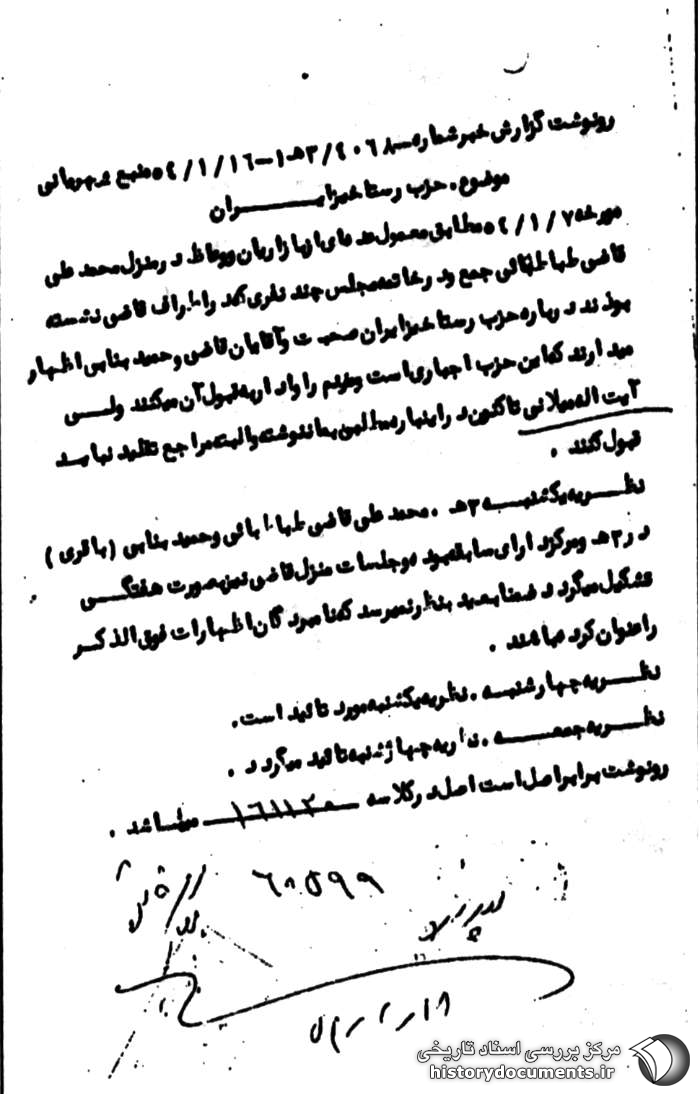 رونوشت گزارش خبر شماره ۳/۴۰۶ هـ۱-۵۴/۱/۱۶ منبع
موضوع. حزب رستاخیز ایــــران
مورخه ۵۴/۱/۷ مطابق معمول عده ای از بازاریان و وعاظ در منزل محمد علی
قاضی طباطبائی جمع و در خاتمه مجلس چند نفری که در اطراف قاضی نشسته
بودند درباره حزب رستاخیز ایران صحبت و آقایان قاضی و حمید بنابی اظهار
میدارند که این حزب اجباری است و مردم را وادار به قبول آن میکنند ولی
آیت اله میلانی تاکنون در اینباره مطلبی بما ننوشته والبته مراجع تقلید نباید
قبول کنند .
نظــریه یکشنبــه ۳هـ . محمد علی قاضی طباطبائی و حمید بنابی (باقری)
در ۳هـ ومرکز دارای سابقه بوده وجلسات منزل قاضی نیز بصورت هفتگــی
تشکیل میگردد ضمنا بعید بنظر نمیرسد که نامبردگان اظهارات فوق الذکــر
را عنوان کرده باشند .
نظــریه چهارشنبــه . نظریه یکشنبه مورد تائید است.
نظــریه جمعــه . نظریه چهارشنبه تائید میگردد .
رونوشت برابر اصل است اصل در کلاسه ۱۶۱۱۲۰ میباشد .
۶۸۵۹۹
مرکز بررسی اسناد تاریخی
historydocuments.ir